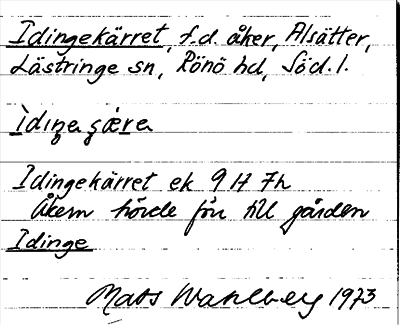 Idingekärret, f.d. åker, Alsätter,
Lästringe sn, Rönö hd, Söd. l.
Ìdiŋa çǽra
Idingekärret ek 9 H 7h
Åkern hörde förr till gården
Idinge
Mats Wahlberg 1973